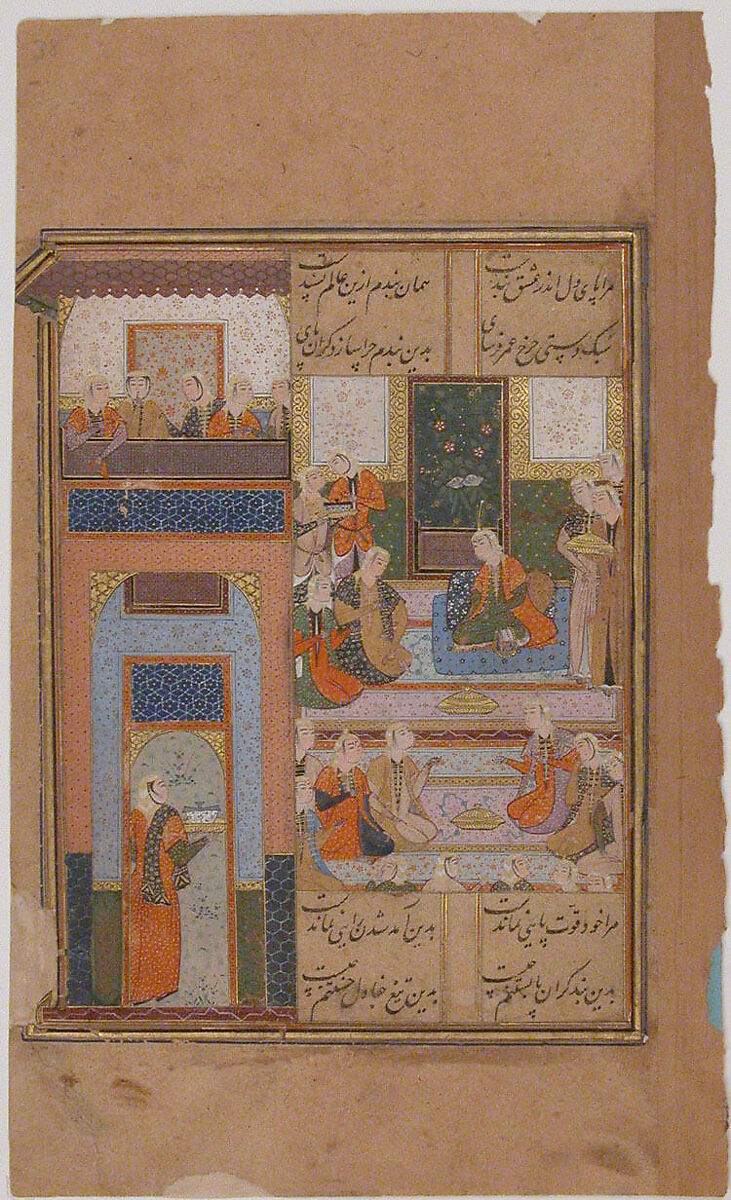 مرا پای دل اندر عشق بندست همان بندم ازین عالم پسندست
سبک دستی چرخ عمر فرسای بدین بندم چرا سازد گران پای
مرا خود قوت پایی نماندست بدین آمد شدن نماندست
بدین بند گران پا بستنم چیست بدین تیغ جفا دل خستنم چیست